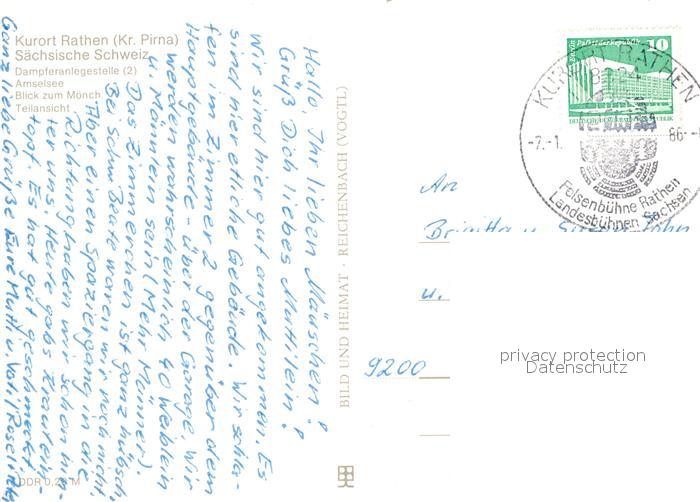 Kurort Rathen (Kr. Pirna)
Sächsische Schweiz
Dampferanlegestelle (2)
Amselsee
Blick zum Mönch
Teilansicht
Hallo, Ihr lieben Märschen!
Grüß Dich liebes Muttilein!
Wir sind hier gut angekommen. Es
sind herrliche Gebäude. Wir schla-
fen im Zimmer 2 gegenüber dem
Hauptgebäude - über der Garage. Wir
werden wahrscheinlich 40 Weiblein
u. Männern sein (Mehr Männer).
Das Zimmerchen ist ganz hübsch.
Bei Schw. waren wir noch nicht.
Aber einen Spaziergang in die
Dichtung haben wir schon hin-
ter uns. Heute gabs Krautein-
topf. Es hat gut geschmeckt.
Ganz liebe Grüße Eure Mutti u. Vati
DDR 0,20 M
BILD UND HEIMAT · REICHENBACH (VOGTL)
Berlin Palast der Republik 10
DEUTSCHE DEMOKRATISCHE REPUBLIK
KURORT RATHEN
8324
-7.-1. 86-
Felsenbühne Rathen
Landesbühnen Sachsen
An
Brigitta u.
u.
9200
privacy protection
Datenschutz